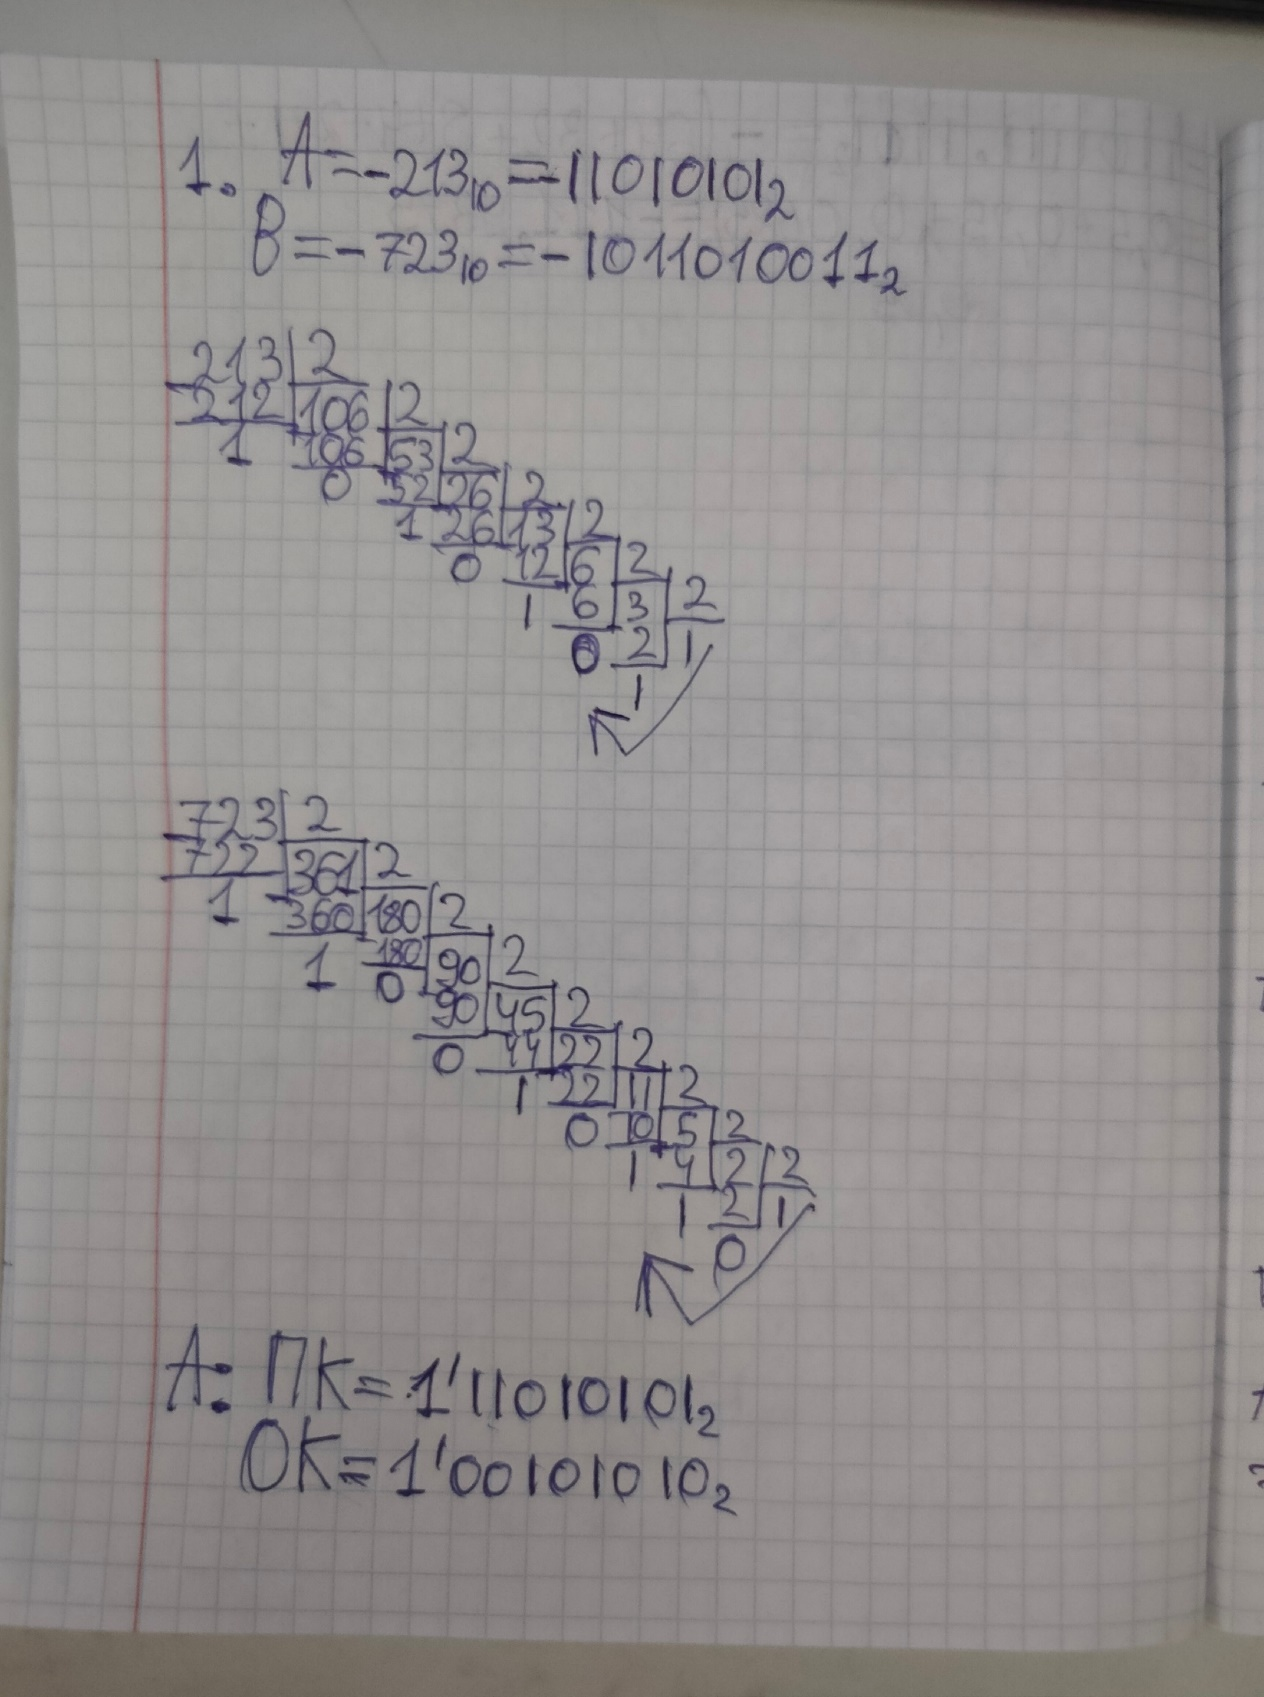 1. A=-213₁₀=-11010101₂
B=-723₁₀=-1011010011₂
213 2
- 212 106 2
1 - 106 53 2
0 - 52 26 2
1 - 26 13 2
0 - 12 6 2
1 - 6 3 2
0 - 2 1
1
723 2
- 722 361 2
1 - 360 180 2
1 - 180 90 2
0 - 90 45 2
0 - 44 22 2
1 - 22 11 2
0 - 10 5 2
1 - 4 2 2
1 - 2 1
0
A: ПК=1'11010101₂
ОК=1'00101010₂